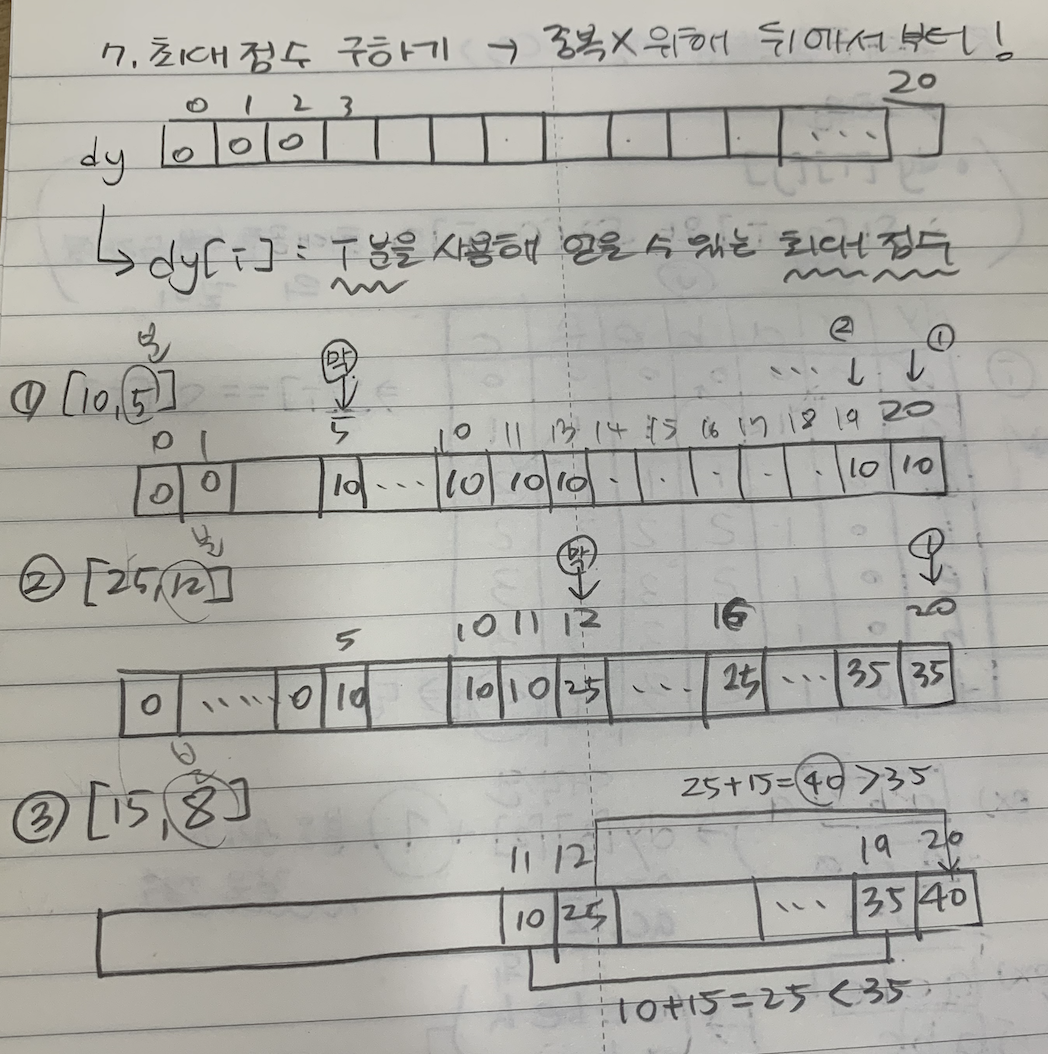 7. 최대점수 구하기 → 중복X 위해 뒤에서부터!
0 1 2 3 20
dy 0 0 0 ...
↳ dy[i] : i분을 사용해 얻을 수 있는 최대점수
분 막 ... ② ①
① [10, 5]
0 1 5 10 11 13 14 15 16 17 18 19 20
0 0 10 ... 10 10 10 . . . . . 10 10
분 막 ①
② [25, 12]
5 10 11 12 16 20
0 ..... 0 10 10 10 25 ... 25 ... 35 35
③ [15, 8]
25+15=40>35
11 12 19 20
10 25 ... 35 40
10+15=25<35